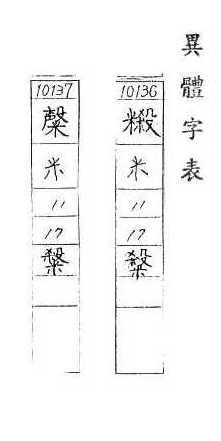 異體字表
10136
米
11
17
10137
米
11
17